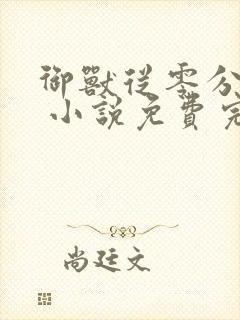 御獸從零分
小說免費完
尚廷文